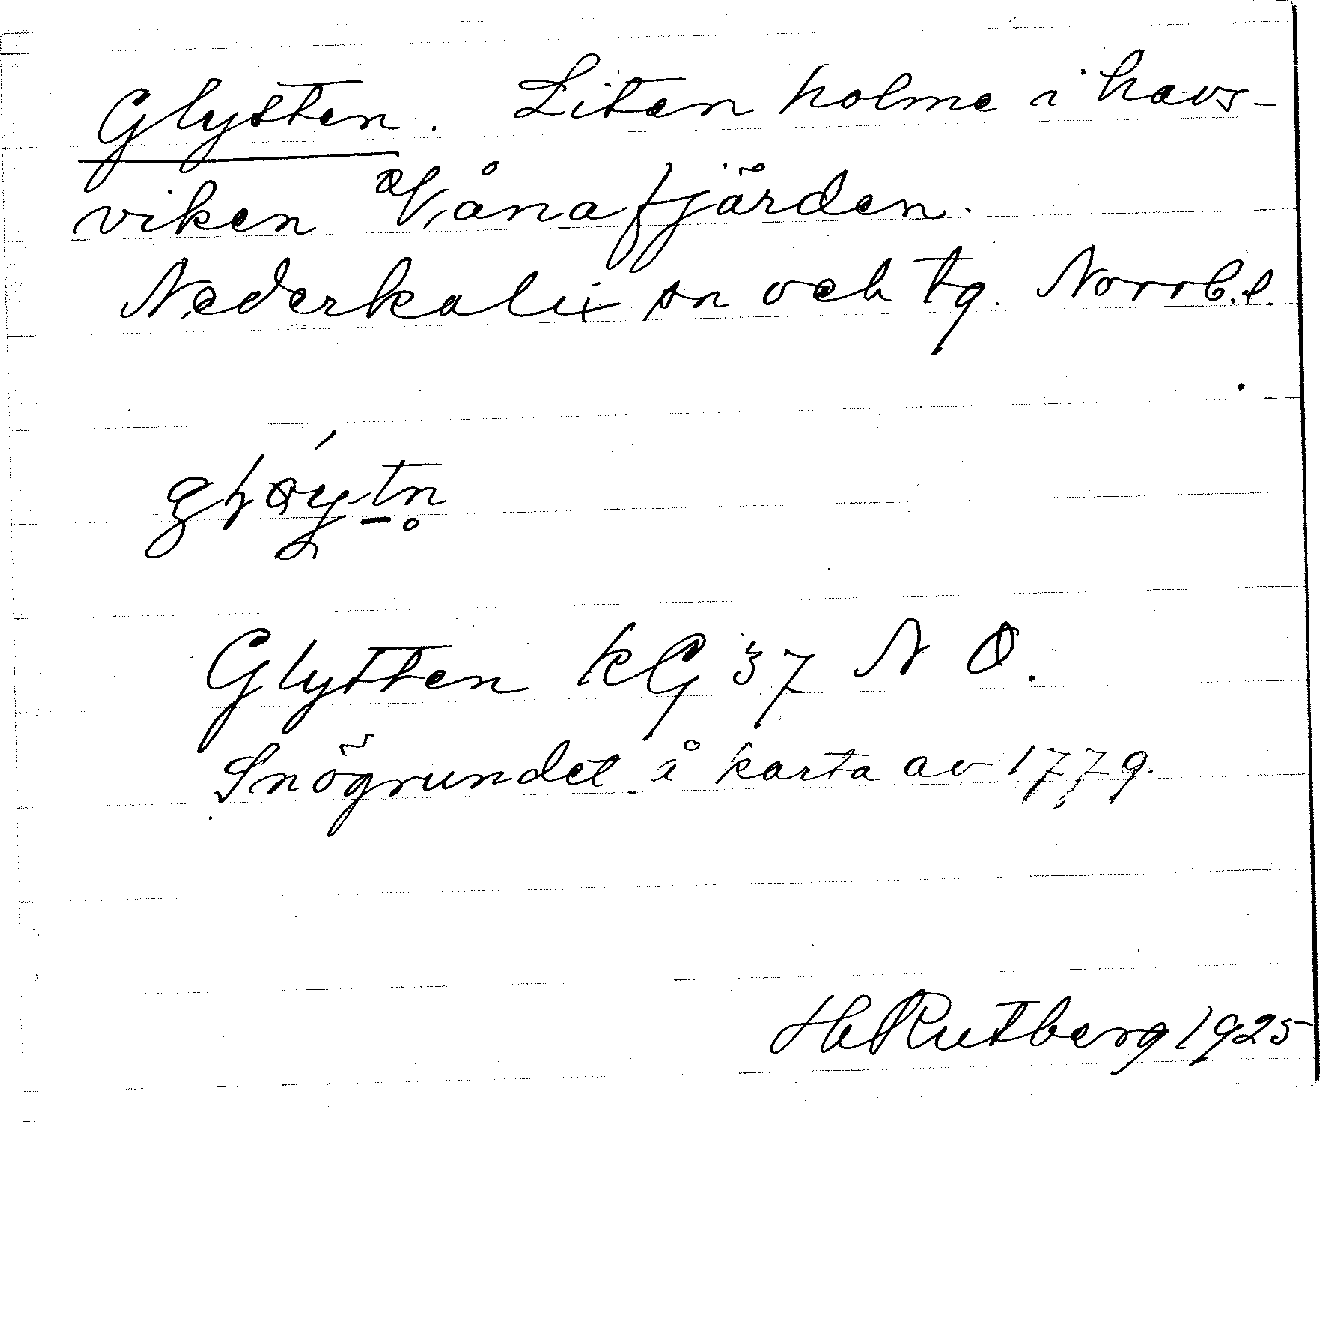 Glytten. Liten holme i havs-
viken Vånafjärden.
Nederkalix sn och tg. Norrb. l.
Glytten kG 37 N O.
Snögrundet å karta av 1779.
H Rutberg 1925